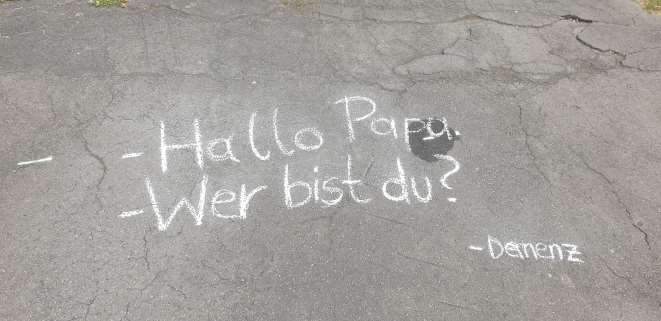 - Hallo Papa.
- Wer bist du?
- Demenz